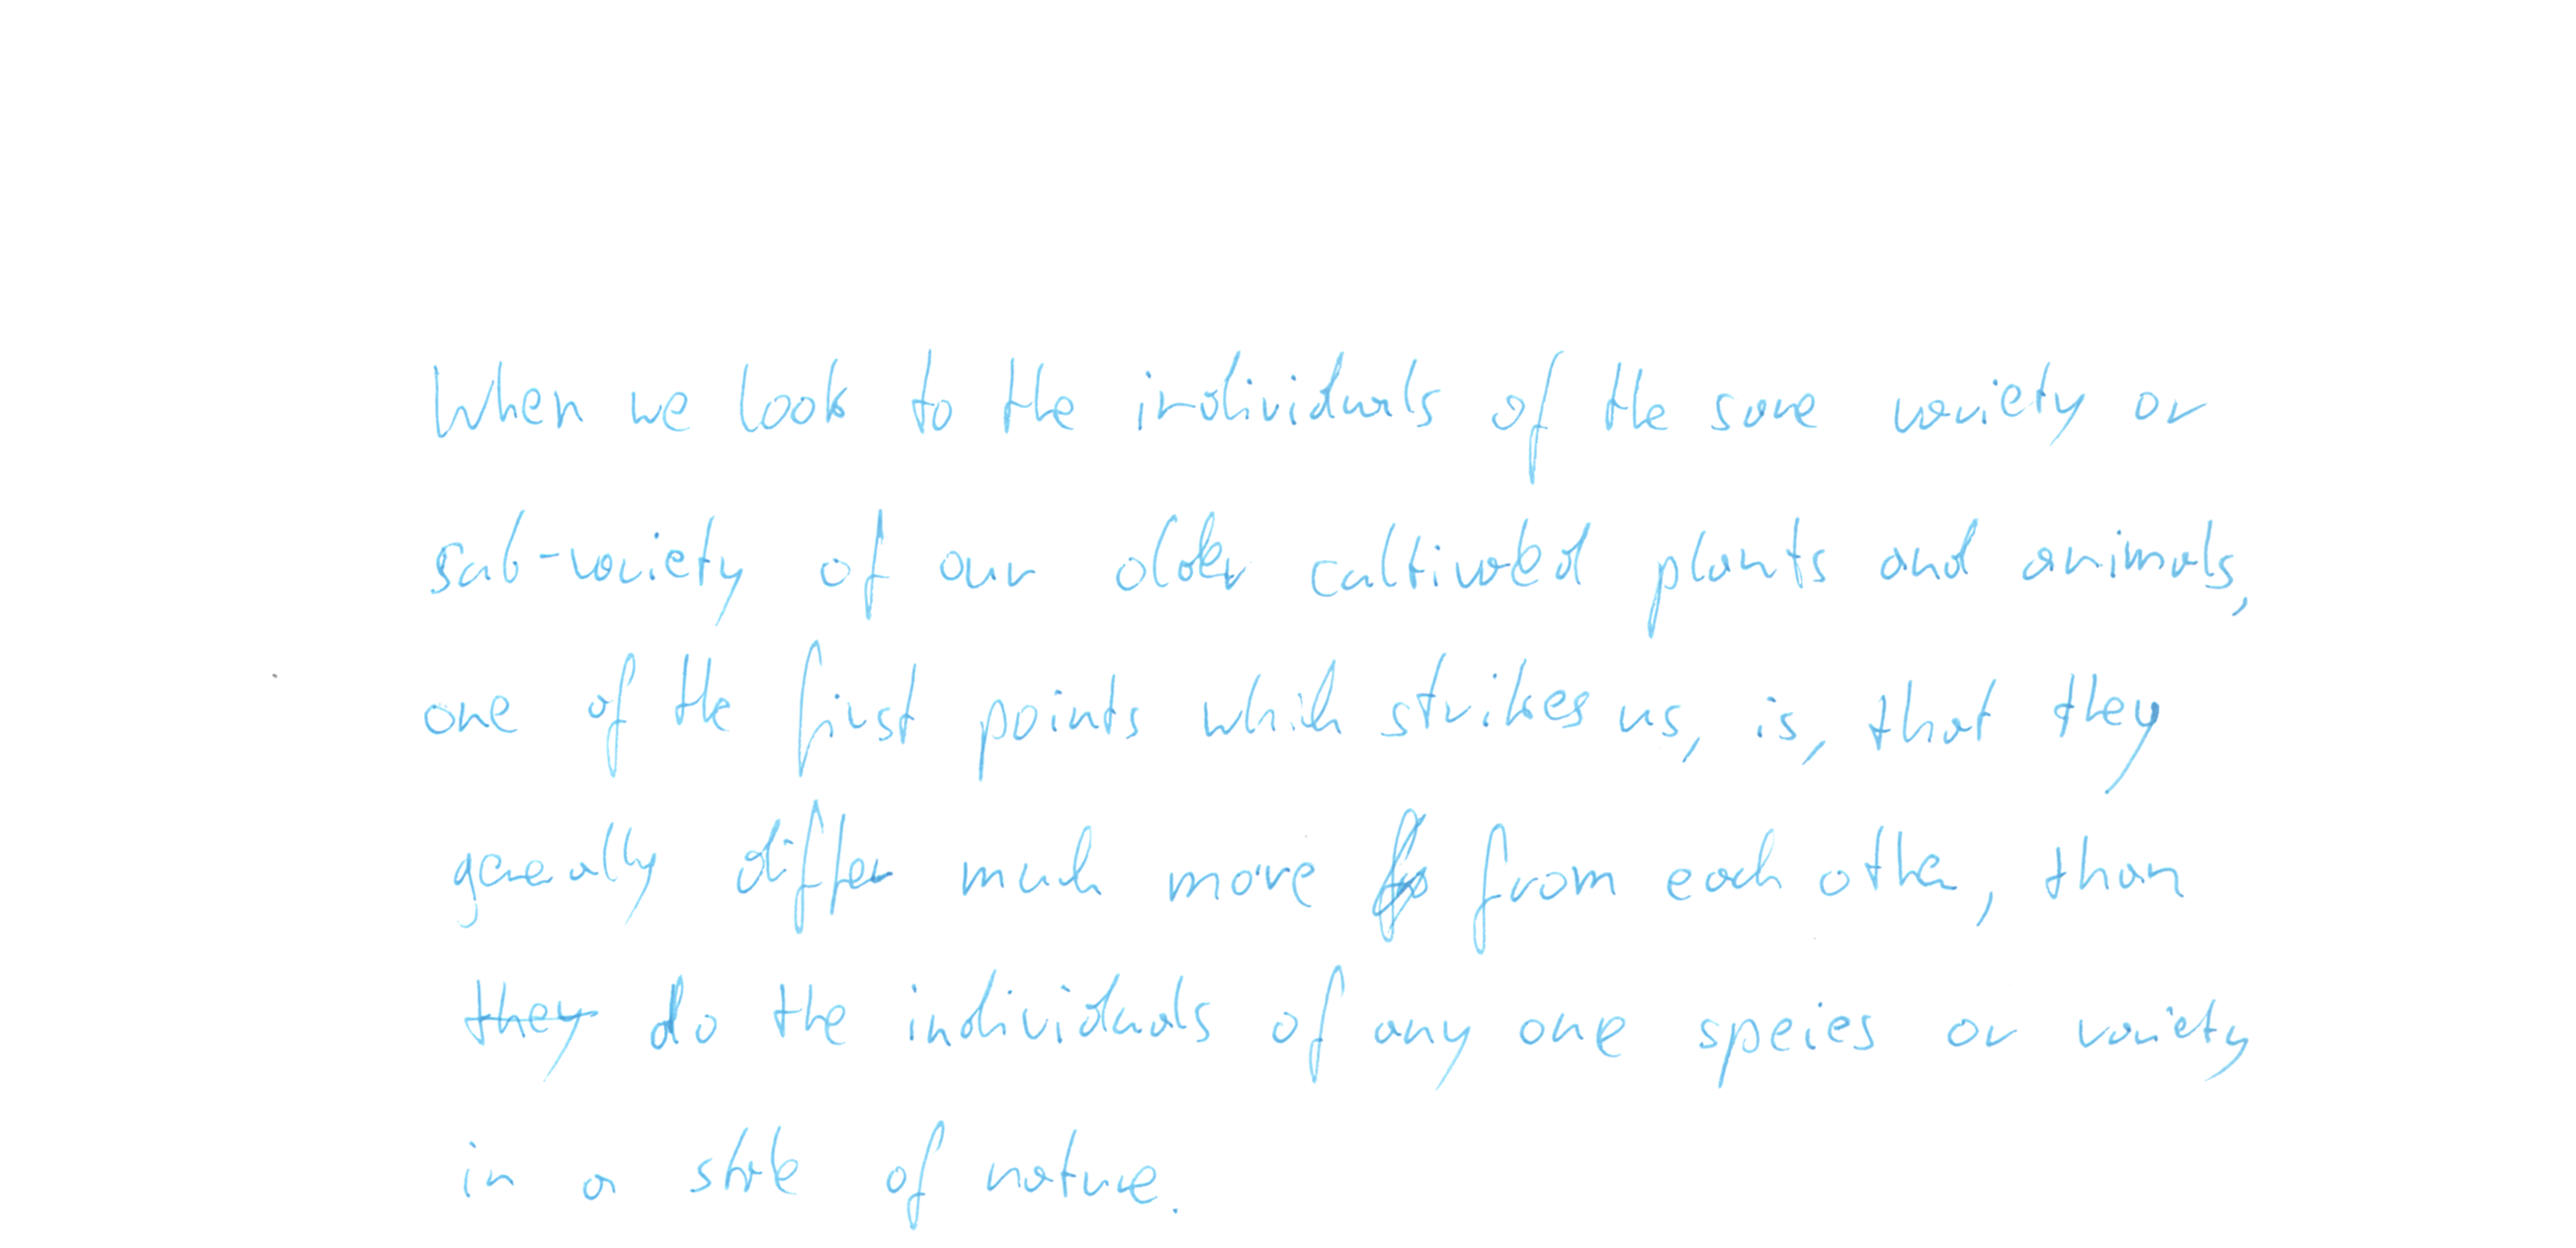 When we look to the individuals of the same variety or
sub-variety of our older cultivated plants and animals,
one of the first points which strikes us, is, that they
generally differ much more from each other, than
they do the individuals of any one speies or variety
in a state of nature.